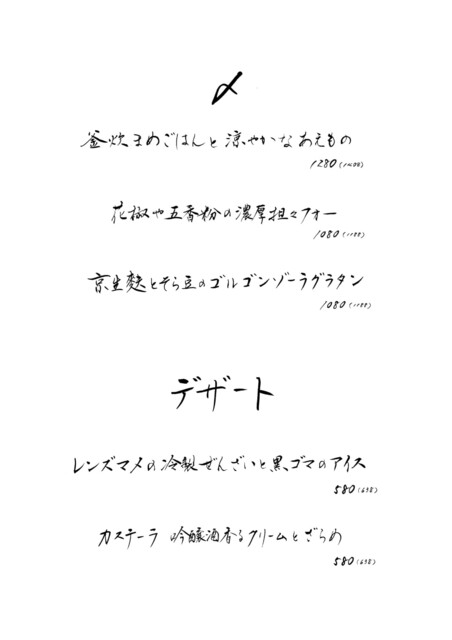 〆
釜炊まめごはんと涼やかなあえもの
1280(1408)
花椒や五香粉の濃厚担々フォー
1080(1188)
京生麩とそら豆のゴルゴンゾーラグラタン
1080(1188)
デザート
レンズマメの冷製ぜんざいと黒ゴマのアイス
580(638)
カステーラ 吟醸酒香るクリームとざらめ
580(638)